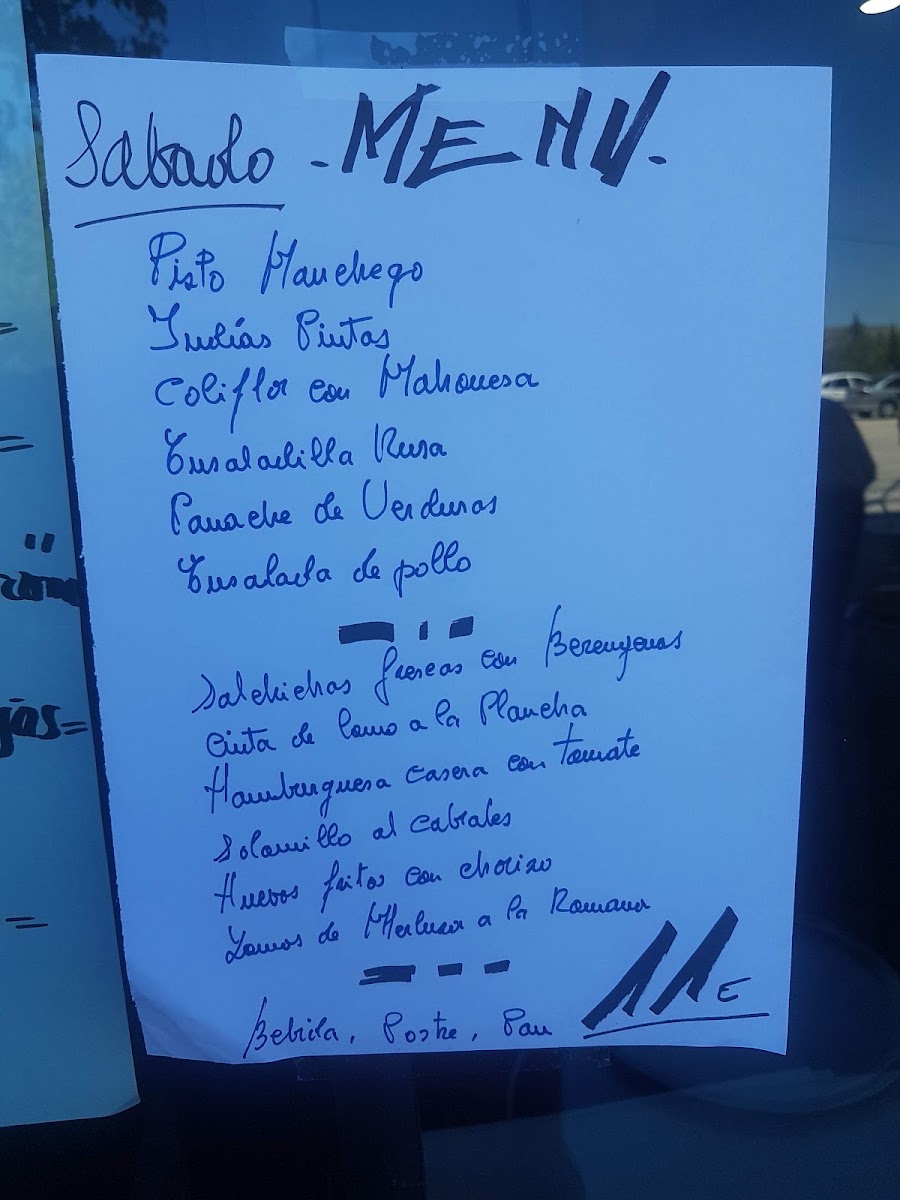 Sabado - MENU -
Pisto Manchego
Judías Pintas
Coliflor con Mahonesa
Ensaladilla Rusa
Panache de Verduras
Ensalada de pollo
Salchichas frescas con Berengenas
Cinta de lomo a la Plancha
Hamburguesa casera con tomate
Solomillo al cabrales
Huevos fritos con chorizo
Lomos de Merluza a la Romana
Bebida, Postre, Pan 11€